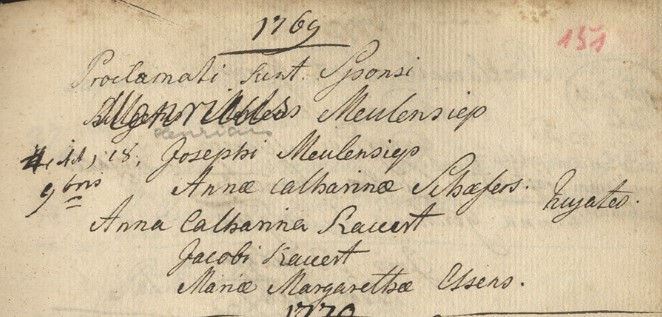 1769
151
Proclamati sunt Sponsi
Henricus Meulensiep
Henricus
4, 11, 18, Josephi Meulensiep
9bris Annæ Catharinæ Schæfers. hujates.
Anna Catharina Kauert
Jacobi Kauert
Mariæ Margarethæ Essens.
1770